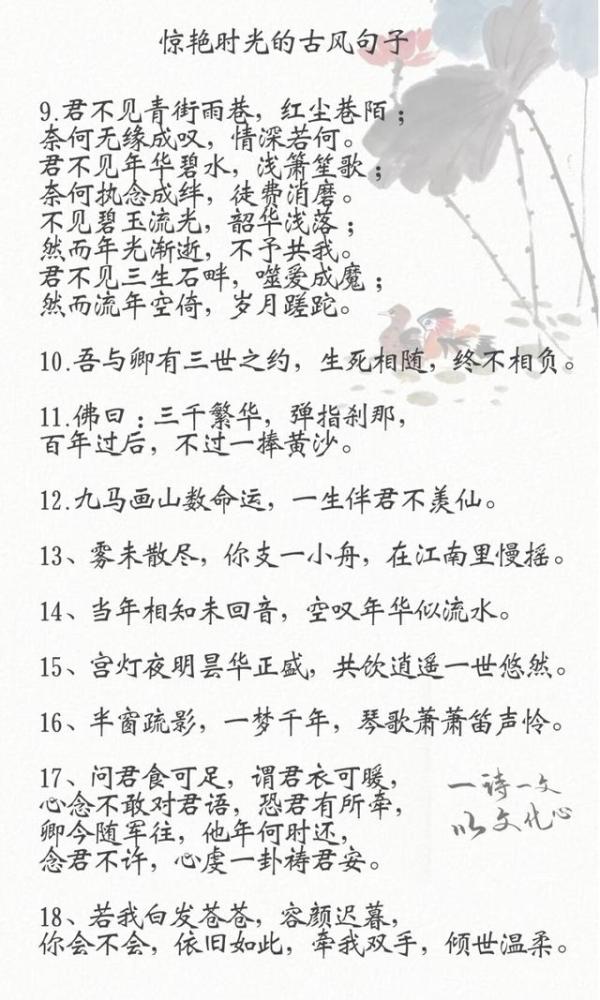 惊艳时光的古风句子
9.君不见青街雨巷，红尘巷陌；
奈何无缘成叹，情深若何。
君不见年华碧水，浅箫笙歌；
奈何执念成绊，徒费消磨。
不见碧玉流光，韶华浅落；
然而年光渐逝，不予共我。
君不见三生石畔，噬爱成魔；
然而流年空倚，岁月蹉跎。
10.吾与卿有三世之约，生死相随，终不相负。
11.佛曰：三千繁华，弹指刹那，
百年过后，不过一捧黄沙。
12.九马画山数命运，一生伴君不羡仙。
13、雾未散尽，你支一小舟，在江南里慢摇。
14、当年相知未回音，空叹年华似流水。
15、宫灯夜明昙华正盛，共饮逍遥一世悠然。
16、半窗疏影，一梦千年，琴歌萧萧笛声怜。
17、问君食可足，谓君衣可暖，
心念不敢对君语，恐君有所牵，
卿今随军往，他年何时还，
念君不许，心虔一卦祷君安。
一诗一文
以文化心
18、若我白发苍苍，容颜迟暮，
你会不会，依旧如此，牵我双手，倾世温柔。